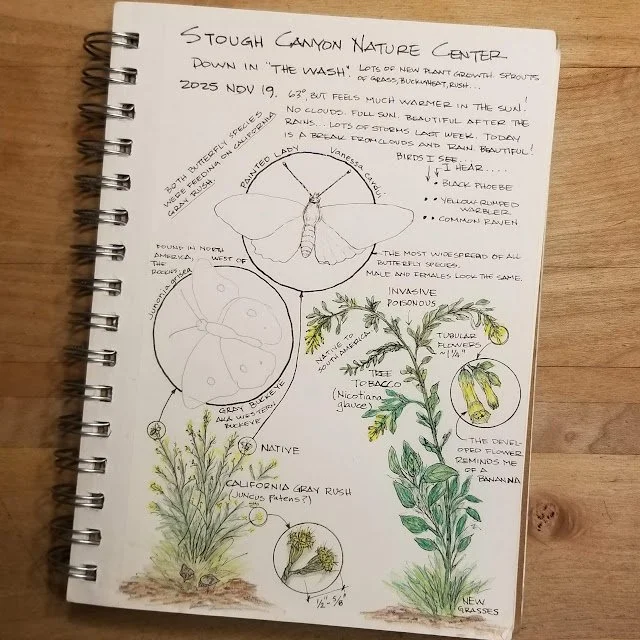 STOUGH CANYON NATURE CENTER
DOWN IN "THE WASH". LOTS OF NEW PLANT GROWTH. SPROUTS
OF GRASS, BUCKWHEAT, RUSH...
2025 NOV 19. 63°, BUT FEELS MUCH WARMER IN THE SUN!
NO CLOUDS. FULL SUN. BEAUTIFUL AFTER THE
RAINS... LOTS OF STORMS LAST WEEK. TODAY
IS A BREAK FROM CLOUDS AND RAIN. BEAUTIFUL!
BIRDS I SEE...
I HEAR....
BLACK PHOEBE
YELLOW-RUMPED
WARBLER
COMMON RAVEN
BOTH BUTTERFLY SPECIES
WERE FEEDING ON CALIFORNIA
GRAY RUSH.
PAINTED LADY
Vanessa cardui
THE MOST WIDESPREAD OF ALL
BUTTERFLY SPECIES.
MALE AND FEMALES LOOK THE SAME.
FOUND IN NORTH
AMERICA, WEST OF
THE
ROCKIES
Junonia grisea
GRAY BUCKEYE
AKA WESTERN
BUCKEYE
INVASIVE
POISONOUS
NATIVE TO
SOUTH AMERICA
TREE
TOBACCO
(Nicotiana
glauca)
TUBULAR
FLOWERS
~1¼"
THE DEVEL-
OPED FLOWER
REMINDS ME
OF A
BANANNA
NATIVE
CALIFORNIA GRAY RUSH
(Juncus Patens?)
½"-⅝"
NEW
GRASSES